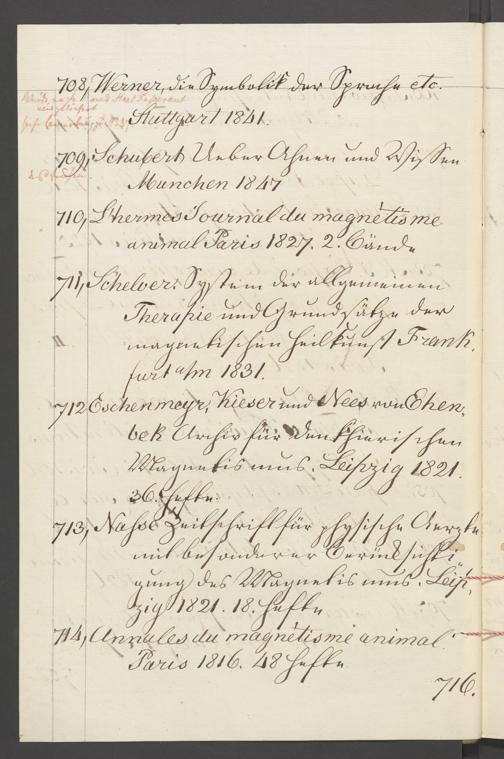 708, Werner, die Symbolik der Sprache etc.
Stuttgart 1841.
709, Schubert Ueber Ahnen und Wissen
Munchen 1847
710, L'hermes Journal du magnétisme
animal Paris 1827. 2. Bände
711, Schelver: System der allgemeinen
Therapie und Grundsätze der
magnetischen Heilkunst Frank,
furt a/m 1831.
712 Eschenmayr, Kieser und Nees von Esen,
bek Archiv für den thierischen
Magnetismus. Leipzig 1821.
36. Hefte.
713, Nasse Zeitschrift für physische Aerzte
mit besonderer Berücksichti
gung des Magnetismus. Leip,
zig 1821. 18. Hefte
714, Annales du magnétisme animal.
Paris 1816. 48 Hefte
716.